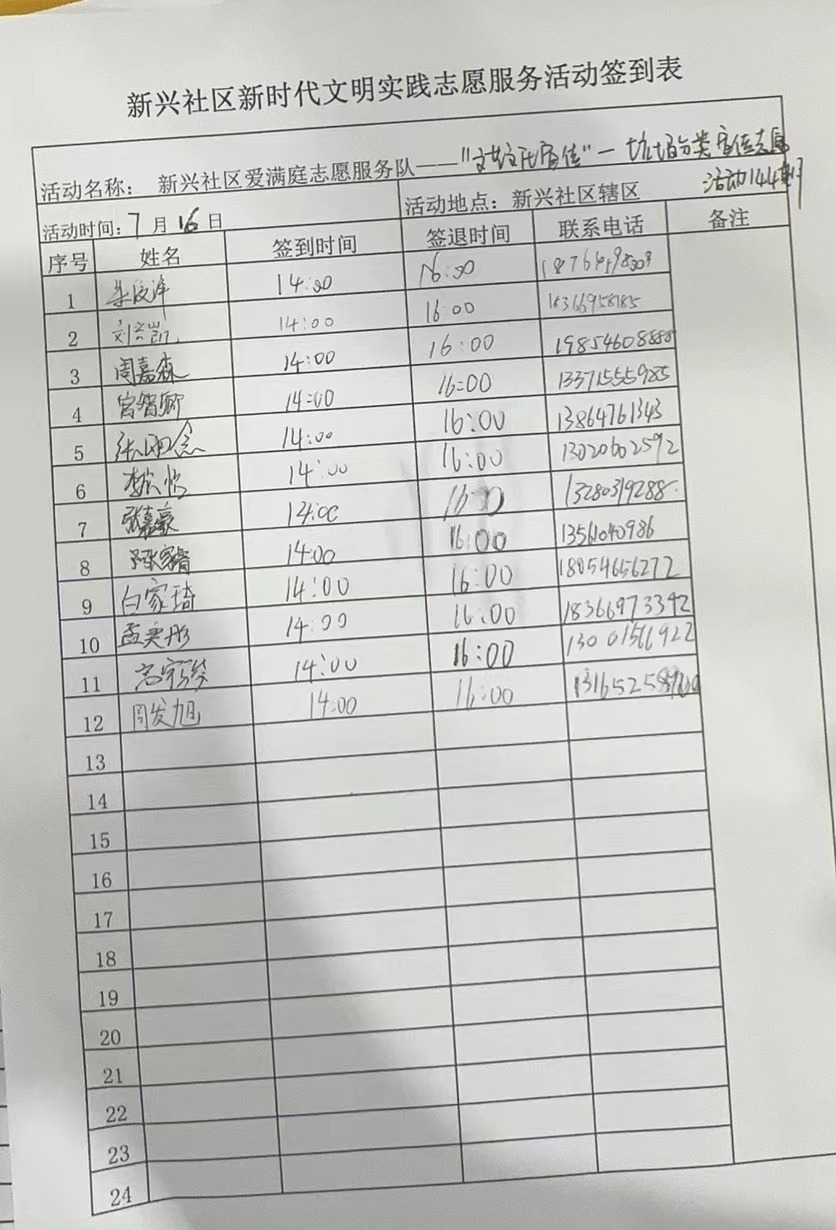 新兴社区新时代文明实践志愿服务活动签到表
活动名称: 新兴社区爱满庭志愿服务队——"宣传"—垃圾分类宣传志愿
活动144期
活动时间:7月16日 活动地点:新兴社区辖区
序号 姓名 签到时间 签退时间 联系电话 备注
1 14:00 16:00
2 14:00 16:00 18366958185
3 周嘉森 14:00 16:00 19854608888
4 宫智卿 14:00 16:00 13371555985
5 14:00 16:00 13864761343
6 14:00 16:00 13020602592
7 张嘉豪 14:00 16:00 13280319288
8 14:00 16:00 1356040986
9 白家琦 14:00 16:00 18054656272
10 孟奕彤 14:00 16:00 18366973392
11 14:00 16:00 13001566922
12 周发旭 14:00 16:00
13
14
15
16
17
18
19
20
21
22
23
24